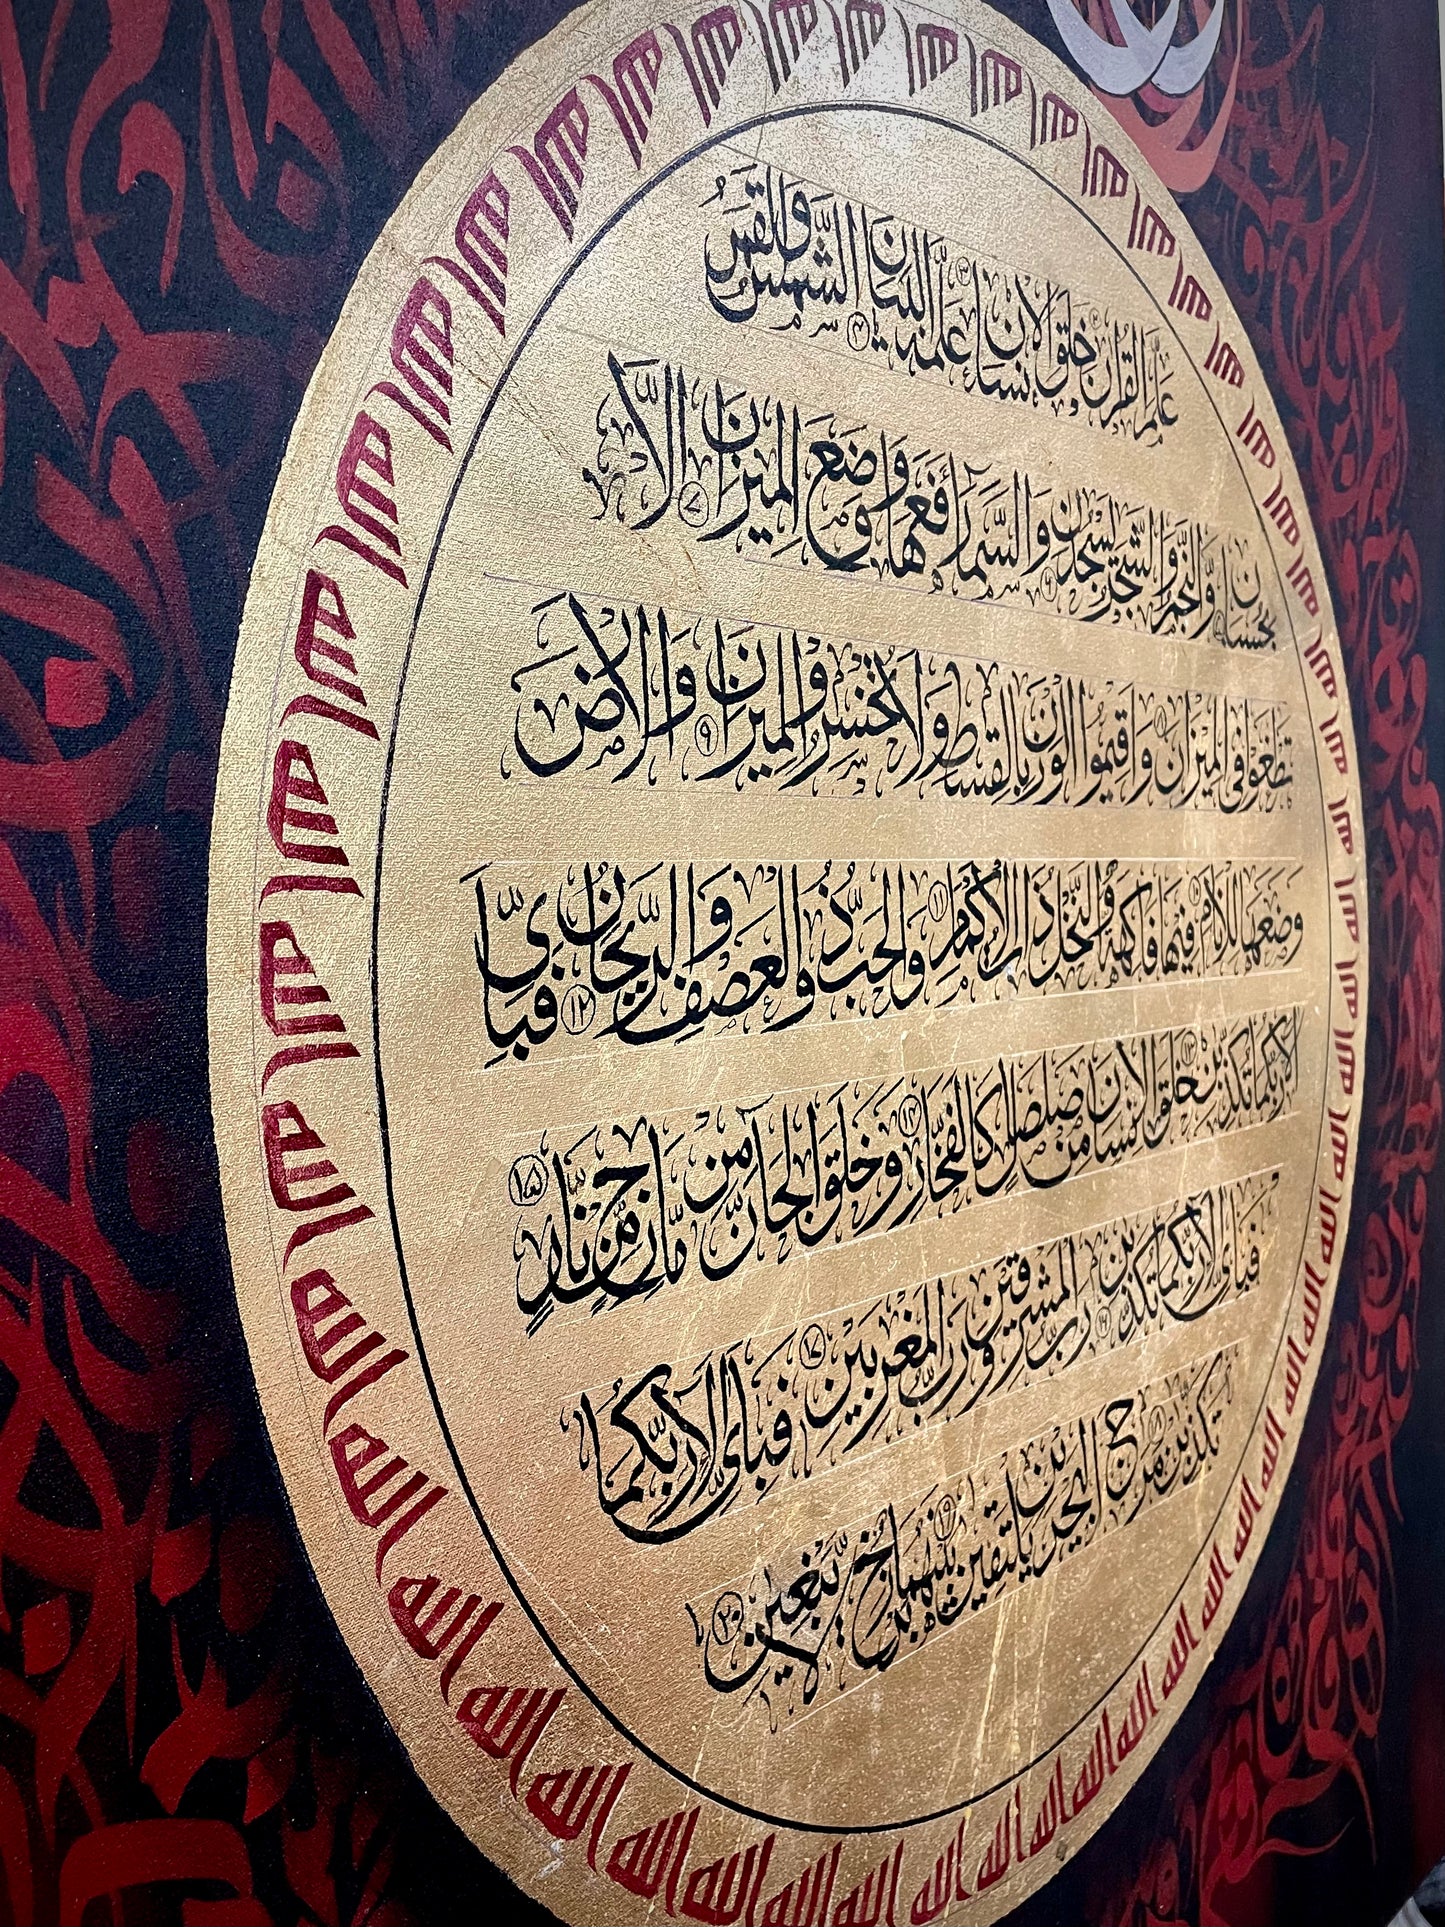 علم القرآن ٢ خلق الإنسان ٣ علمه البيان ٤ الشمس والقمر
بحسبان ٥ والنجم والشجر يسجدان ٦ والسماء رفعها ووضع الميزان ٧ ألا
تطغوا في الميزان ٨ وأقيموا الوزن بالقسط ولا تخسروا الميزان ٩ والأرض
وضعها للأنام ١٠ فيها فاكهة والنخل ذات الأكمام ١١ والحب ذو العصف والريحان ١٢ فبأي
آلاء ربكما تكذبان ١٣ خلق الإنسان من صلصال كالفخار ١٤ وخلق الجان من مارج من نار ١٥
فبأي آلاء ربكما تكذبان ١٦ رب المشرقين ورب المغربين ١٧ فبأي آلاء ربكما
تكذبان ١٨ مرج البحرين يلتقيان ١٩ بينهما برزخ لا يبغيان ٢٠
الله الله الله الله الله الله الله الله الله الله الله الله الله الله الله الله الله الله الله الله